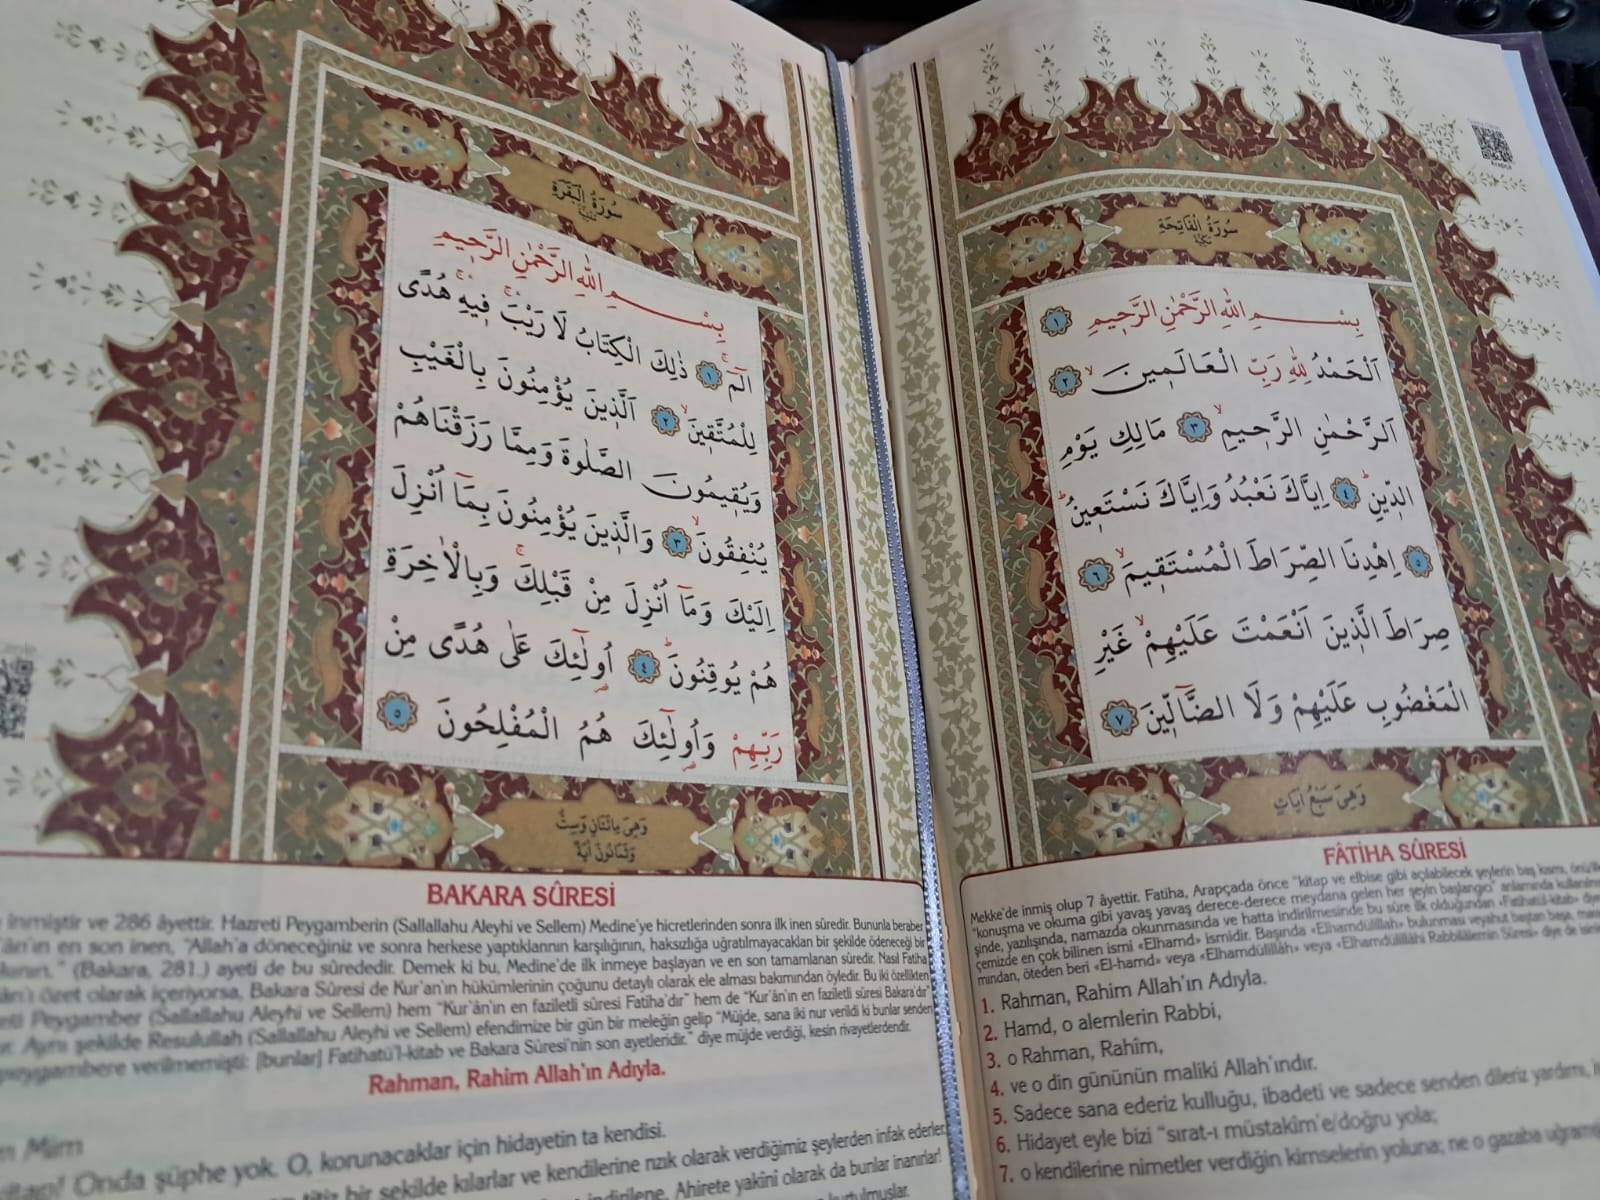 سُورَةُ الْفَاتِحَةِ
مَكِّيَّةٌ
بِسْمِ اللّٰهِ الرَّحْمٰنِ الرَّح۪يمِ ﴿١﴾
اَلْحَمْدُ لِلّٰهِ رَبِّ الْعَالَم۪ينَۙ ﴿٢﴾
اَلرَّحْمٰنِ الرَّح۪يمِۙ ﴿٣﴾ مَالِكِ يَوْمِ
الدّ۪ينِۜ ﴿٤﴾ اِيَّاكَ نَعْبُدُ وَاِيَّاكَ نَسْتَع۪ينُۜ
﴿٥﴾ اِهْدِنَا الصِّرَاطَ الْمُسْتَق۪يمَۙ ﴿٦﴾
صِرَاطَ الَّذ۪ينَ اَنْعَمْتَ عَلَيْهِمْۙ غَيْرِ
الْمَغْضُوبِ عَلَيْهِمْ وَلَا الضَّٓالّ۪ينَ ﴿٧﴾
وَهِيَ سَبْعُ اٰيَاتٍ
FÂTİHA SÛRESİ
Mekke'de inmiş olup 7 âyettir. Fatiha, Arapçada önce "kitap ve elbise gibi açılabilecek şeylerin baş kısmı,
"konuşma ve okuma gibi yavaş yavaş derece-derece meydana gelen her şeyin başlangıcı" anlamında
şinde, yazılışında, namazda okunmasında ve hatta indirilmesinde bu sûre ilk olduğundan «Fatihatü'l-kitab»
çemizde en çok bilinen ismi «Elhamd» ismidir. Başında «Elhamdülillah» bulunması veyahut baştan başa,
mından, öteden beri «El-hamd» veya «Elhamdülillâh» veya «Elhamdülillâhi Rabbilâlemin Sûresi» diye de
1. Rahman, Rahim Allah'ın Adıyla.
2. Hamd, o alemlerin Rabbi,
3. o Rahman, Rahîm,
4. ve o din gününün maliki Allah'ındır.
5. Sadece sana ederiz kulluğu, ibadeti ve sadece senden dileriz yardımı,
6. Hidayet eyle bizi "sırat-ı müstakîm'e/doğru yola;
7. o kendilerine nimetler verdiğin kimselerin yoluna; ne o gazaba
سُورَةُ الْبَقَرَةِ
بِسْمِ اللّٰهِ الرَّحْمٰنِ الرَّح۪يمِ
الٓمٓۚ ﴿١﴾ ذٰلِكَ الْكِتَابُ لَا رَيْبَۚ ف۪يهِۚ هُدًى
لِلْمُتَّق۪ينَۙ ﴿٢﴾ اَلَّذ۪ينَ يُؤْمِنُونَ بِالْغَيْبِ
وَيُق۪يمُونَ الصَّلٰوةَ وَمِمَّا رَزَقْنَاهُمْ
يُنْفِقُونَۙ ﴿٣﴾ وَالَّذ۪ينَ يُؤْمِنُونَ بِمَٓا اُنْزِلَ
اِلَيْكَ وَمَٓا اُنْزِلَ مِنْ قَبْلِكَۚ وَبِالْاٰخِرَةِ
هُمْ يُوقِنُونَۜ ﴿٤﴾ اُو۬لٰٓئِكَ عَلٰى هُدًى مِنْ
رَبِّهِمْ وَاُو۬لٰٓئِكَ هُمُ الْمُفْلِحُونَ ﴿٥﴾
وَهِيَ مِائَتَانِ وَسِتٌّ
وَثَمَانُونَ اٰيَةً
BAKARA SÛRESİ
inmiştir ve 286 âyettir. Hazreti Peygamberin (Sallallahu Aleyhi ve Sellem) Medine'ye hicretlerinden sonra ilk inen sûredir. Bununla beraber
en son inen, "Allah'a döneceğiniz ve sonra herkese yaptıklarının karşılığının, haksızlığa uğratılmayacakları bir şekilde ödeneceği bir
(Bakara, 281.) ayeti de bu sûrededir. Demek ki bu, Medine'de ilk inmeye başlayan ve en son tamamlanan sûredir. Nasıl Fatiha
özet olarak içeriyorsa, Bakara Sûresi de Kur'an'ın hükümlerinin çoğunu detaylı olarak ele alması bakımından öyledir. Bu iki özellikten
Peygamber (Sallallahu Aleyhi ve Sellem) hem "Kur'ân'ın en faziletli sûresi Fatiha'dır" hem de "Kur'ân'ın en faziletli sûresi Bakara'dır"
Aynı şekilde Resulullah (Sallallahu Aleyhi ve Sellem) efendimize bir gün bir meleğin gelip "Müjde, sana iki nur verildi ki bunlar senden
peygambere verilmemişti: [bunlar] Fatihatü'l-kitab ve Bakara Sûresi'nin son ayetleridir." diye müjde verdiği, kesin rivayetlerdendir.
Rahman, Rahim Allah'ın Adıyla.
Mîm
Onda şüphe yok. O, korunacaklar için hidayetin ta kendisi.
titiz bir şekilde kılarlar ve kendilerine rızık olarak verdiğimiz şeylerden infak ederler.
indirilene, Ahirete yakînî olarak da bunlar inanırlar!
kurtulmuşlar.